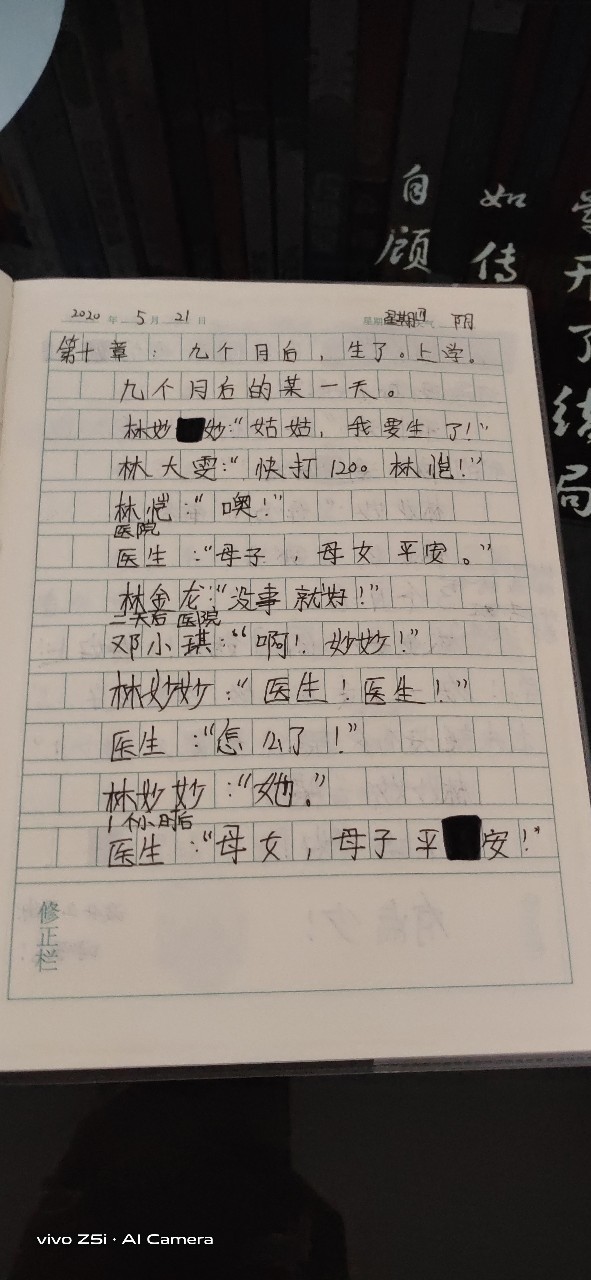 自顾
如传
开了
局
2020年5月21日 星期四 阴
第十章：九个月后，生了。上学。
九个月后的某一天。
林妙妙：“姑姑，我要生了！”
林大雯：“快打1200 林恺！”
林恺：“噢！”
医院
医生：“母子，母女平安。”
林金龙：“没事就好！”
二天后 医院
邓小琪：“啊！妙妙！”
林妙妙：“医生！医生！”
医生：“怎么了！”
林妙妙：“她。”
1个小时后
医生：“母女，母子平安！”
修正栏
vivo Z5i · AI Camera